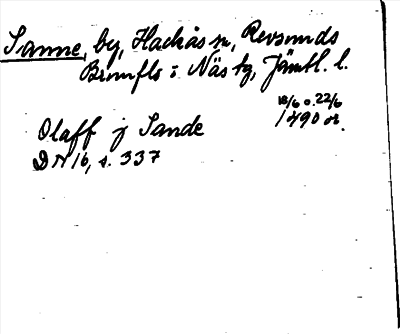 Sanne, by, Hackås sn, Revsunds
Brunflo o. Näs tg, Jämtl. l.
18/6 o. 22/6
Olaff j Sande 1490 or.
DN 16, s. 337